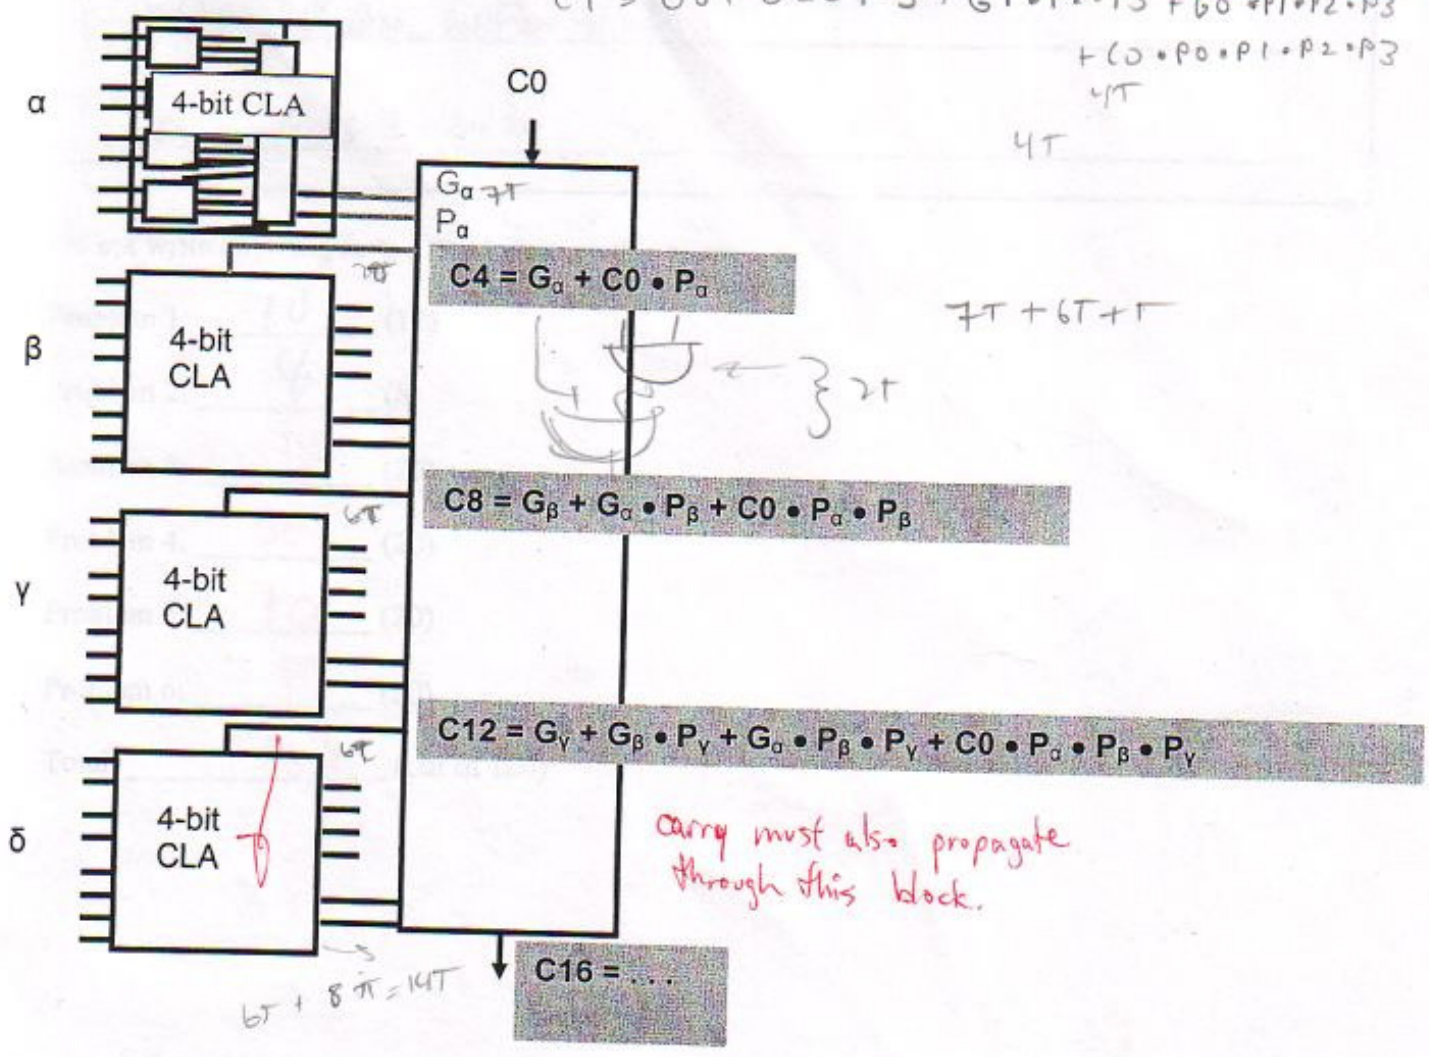 + G0 • P1 • P2 • P3
+ C0 • P0 • P1 • P2 • P3
4T
4T
α
4-bit CLA
C0
Gα 7T
Pα
C4 = Gα + C0 • Pα
7T + 6T + T
β
4-bit
CLA
2T
C8 = Gβ + Gα • Pβ + C0 • Pα • Pβ
6T
γ
4-bit
CLA
C12 = Gγ + Gβ • Pγ + Gα • Pβ • Pγ + C0 • Pα • Pβ • Pγ
6T
δ
4-bit
CLA
carry must also propagate
through this block.
C16 = . . .
6T + 8T = 14T